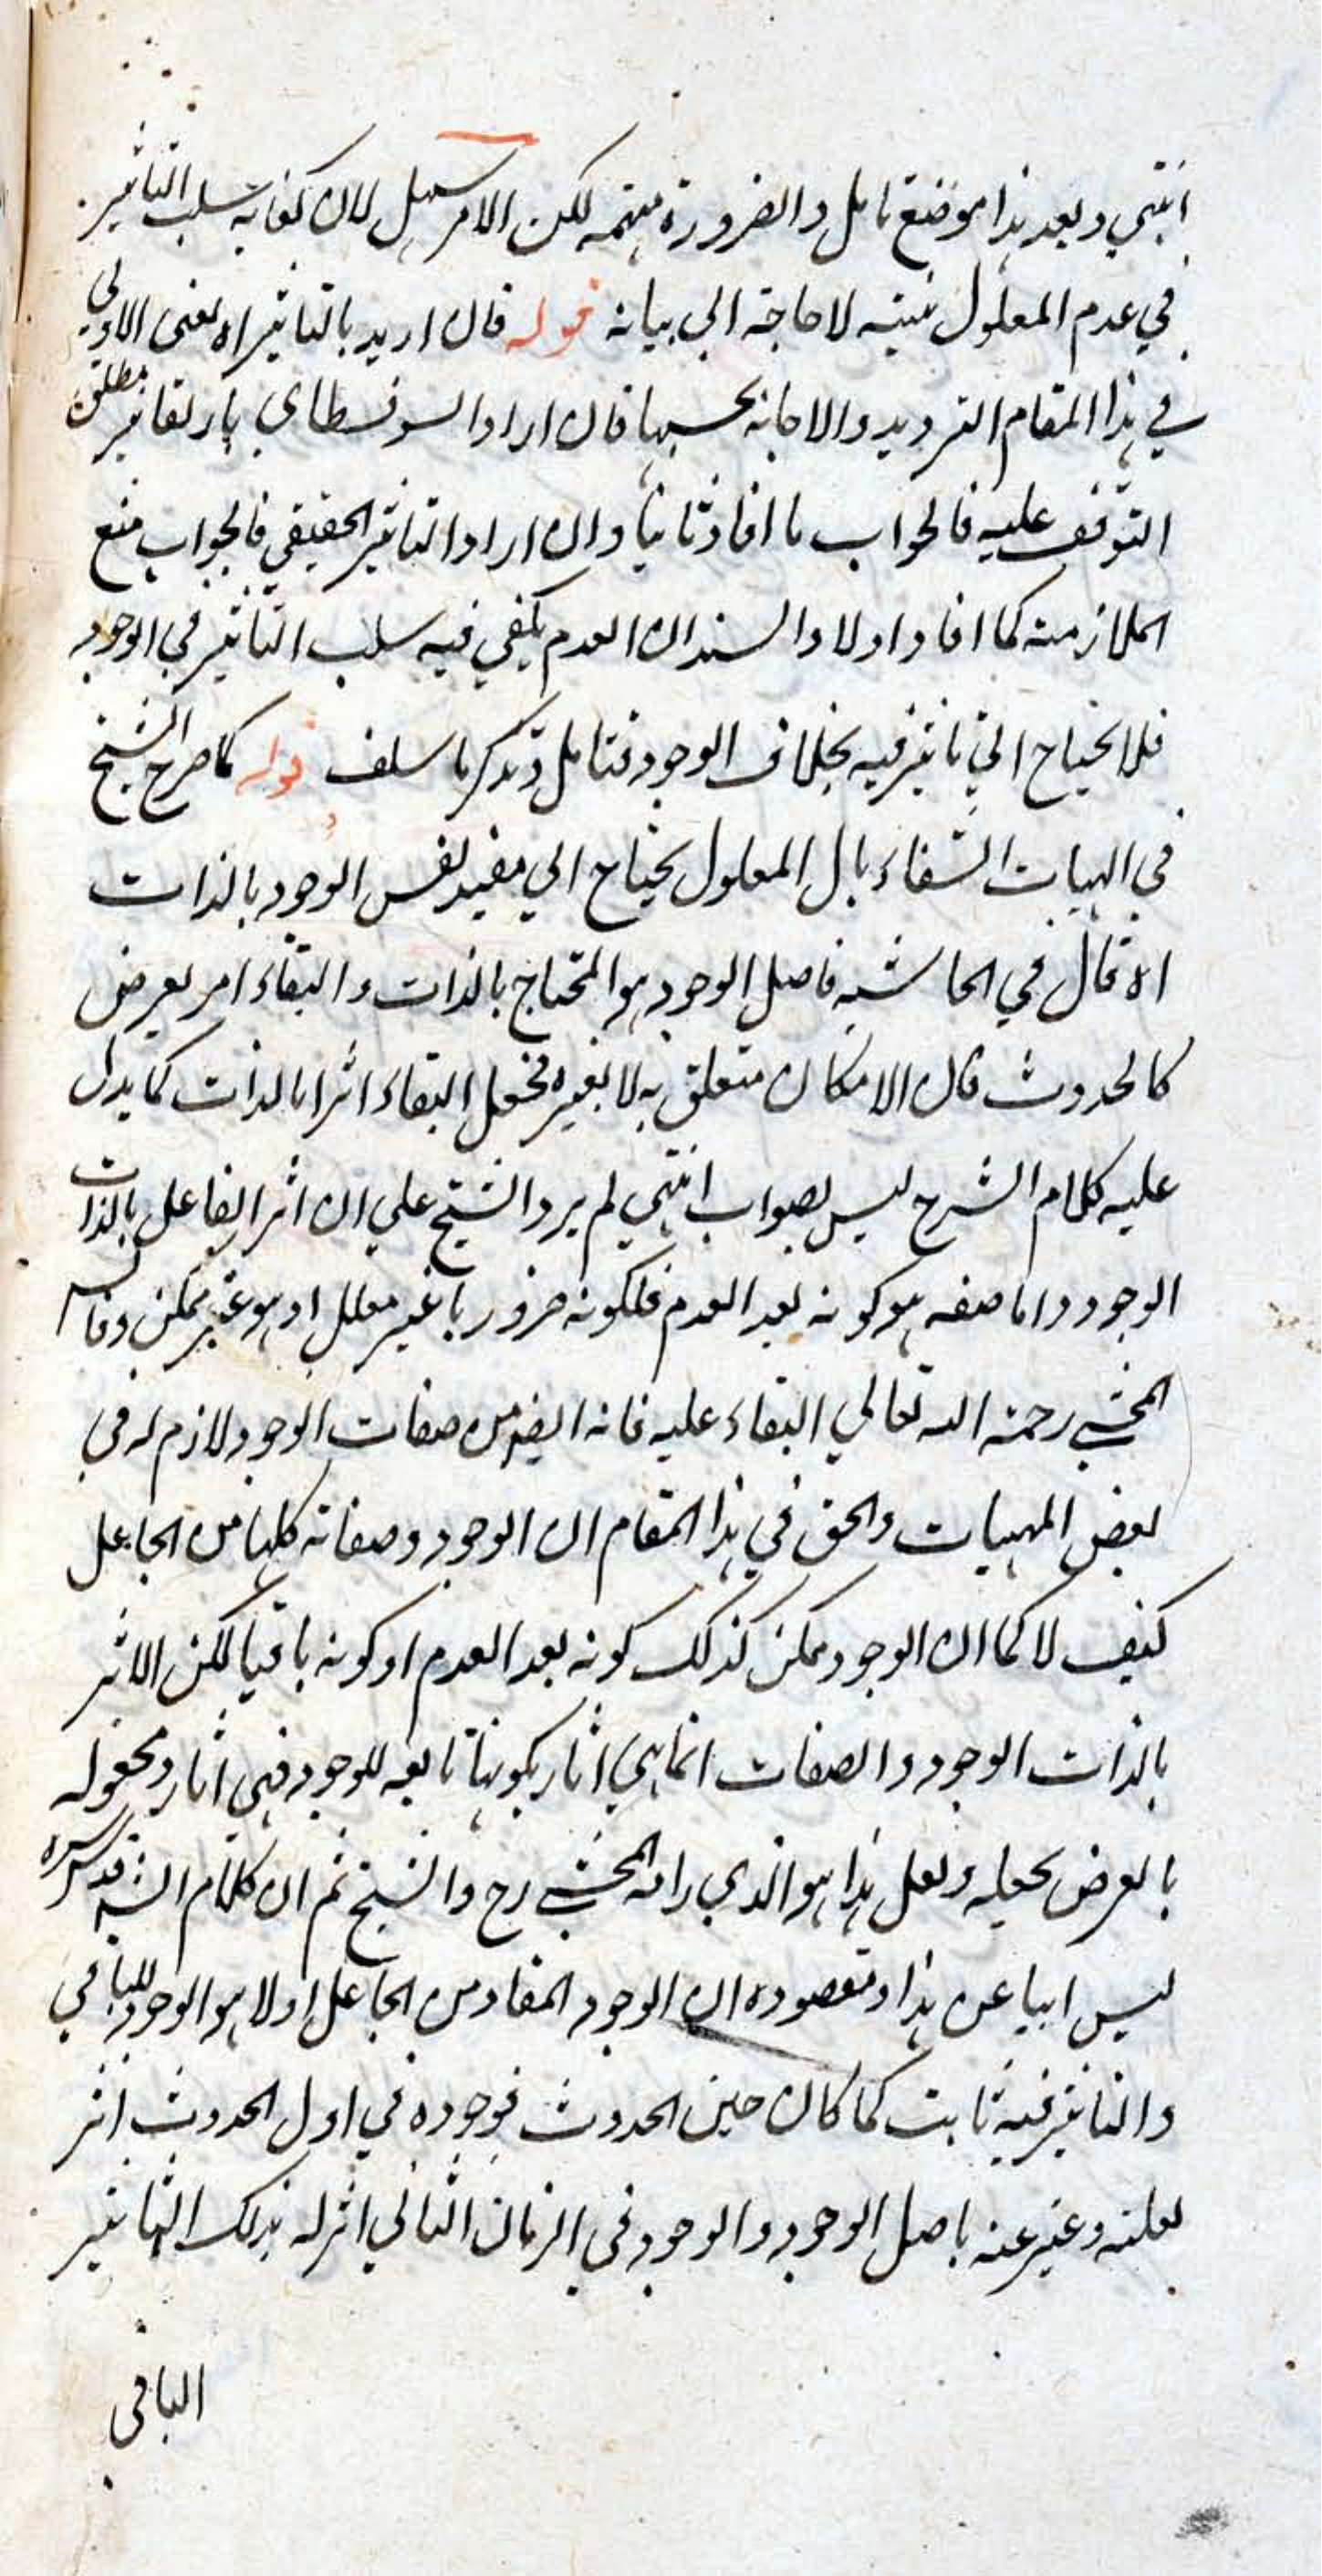 انتهي وبعد هذا موضع تامل والضرورة متهمه لكن الامر سهل لان كفاية سلب التاثير
في عدم المعلول بينه لا حاجة الي بيانه قوله فان اريد بالتاثير اه يعني الاولي
في هذا المقام الترديد والاجابة بحسبها فان اراد السوفسطاي بالتاثير مطلق
التوقف عليه فالجواب ما افاد ثانيا وان اراد التاثير الحقيقي فالجواب منع
الملازمة كما افاد اولا والسند ان العدم يكفي فيه سلب التاثير في الوجود
فلا يحتاج الي تاثير فيه بخلاف الوجود فتامل وتذكر ما سلف قوله كما صرح الشيخ
في الهيات الشفاء بان المعلول يحتاج الي مفيد لنفس الوجود بالذات
اه قال في الحاشيه فاصل الوجود هو المحتاج بالذات والبقاء امر يعرض
كالحدوث فان الامكان متعلق به لا بغيره فجعل البقاء اثرا بالذات كما يدل
عليه كلام الشرح ليس بصواب انتهي لم يرد الشيخ علي ان اثر الفاعل بالذات
الوجود واما صفه هو كونه بعد العدم فلكونه ضروريا غير معلل او هو غير ممكن وقاسه
المحشي رحمة الله تعالي البقاء عليه فانه ايضا من صفات الوجود لازم له في
بعض المهيات والحق في هذا المقام ان الوجود وصفاته كلها من الجاعل
كيف لا كما ان الوجود ممكن كذلك كونه بعد العدم او كونه باقيا لكن الاثر
بالذات الوجود والصفات انما هي اثار بكونها تابعه للوجود فهي اثار ومجعوله
بالعرض بجعله ولعل هذا هو الذي رامه المحشي رح والشيخ ثم ان كلام الشه قدس سره
ليس ابيا عن هذا ومقصوده ان الوجود المفاد من الجاعل اولا هو الوجود للباقي
والتاثير فيه ثابت كما كان حين الحدوث فوجوده في اول الحدوث اثر
لعلته وعبر عنه باصل الوجود والوجود في الزمان الثاني اثر له بذلك التاثير
الباقي